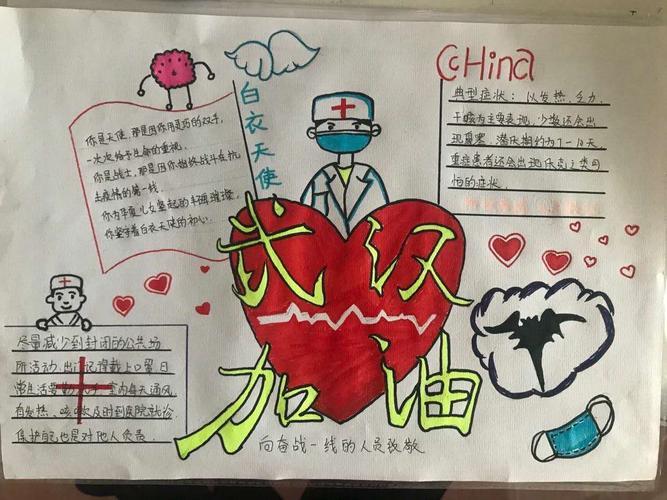 CcHina
白衣天使
你是天使，那是因你用灵巧的双手，
一次次给予生命的重视。
你是战士，那是因你始终战斗在抗
击疫情的第一线。
你为华夏儿女竖起的丰碑
你坚守着白衣天使的初心。
典型症状：以发热、乏力、
干咳为主要表现，少数还会出
现鼻塞，潜伏期约为7-10天
重症患者还会出现休克之类可
怕的症状。
武汉
加油
向奋战一线的人员致敬
尽量减少到封闭的公共场
所活动，出门记得戴上口罩，日
常生活要勤洗手，室内每天通风，
有发热、咳嗽及时到医院就诊
保护自己也是对他人负责